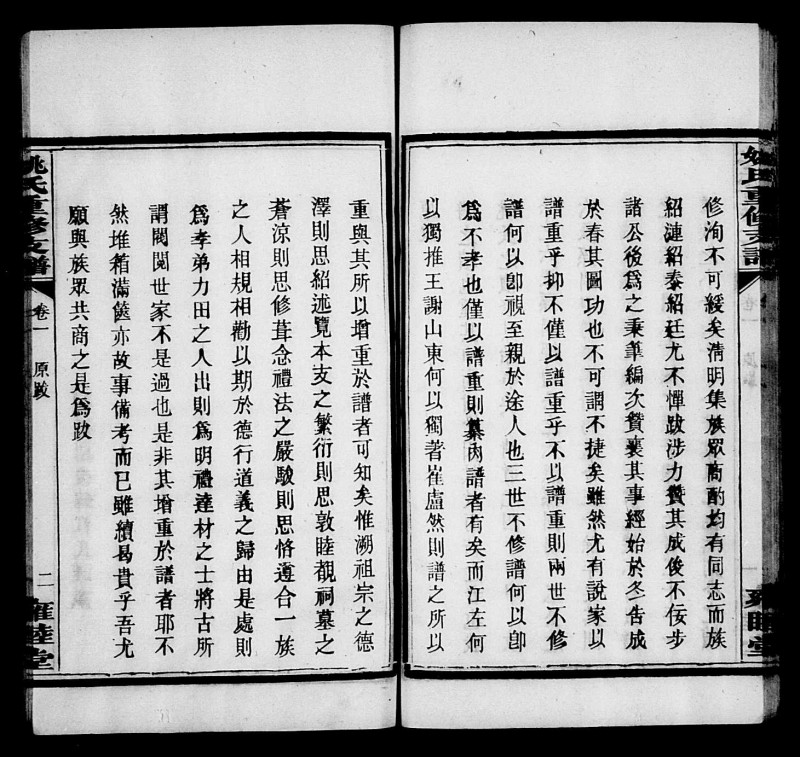 姚氏重修支譜
雍睦堂
修洵不可緩矣清明集族眾商酌均有同志而族
紹漣紹泰紹廷尤不憚跋涉力贊其成俊不佞步
諸公後為之秉筆編次贊襄其事經始於冬告成
於春其圖功也不可謂不捷矣雖然尤有說家以
譜重乎抑不僅以譜重乎不以譜重則兩世不修
譜何以卽視至親於途人也三世不修譜何以卽
為不孝也僅以譜重則纂內譜者有矣而江左何
以獨推王謝山東何以獨著崔盧然則譜之所以
重與其所以增重於譜者可知矣惟溯祖宗之德
澤則思紹述覽本支之繁衍則思敦睦覩祠墓之
蒼涼則思修葺念禮法之嚴駿則思恪遵合一族
之人相規相勸以期於德行道義之歸由是處則
為孝弟力田之人出則為明禮達材之士將古所
謂閥閱世家不是過也是非其增重於譜者耶不
然堆箱滿篋亦故事備考而已雖續曷貴乎吾尤
願與族眾共商之是為跋
姚氏重修支譜
卷一
原跋
二
雍睦堂